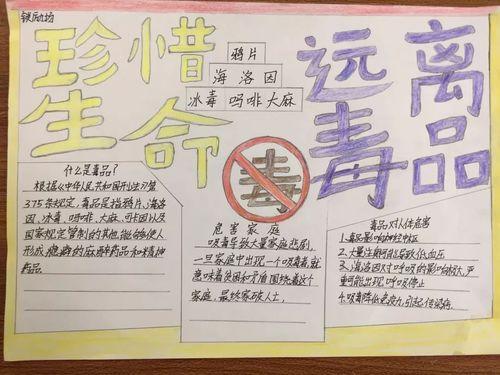 珍惜
生命
鸦片
海洛因
冰毒吗啡大麻
远离
毒品
毒
什么是毒品?
根据《中华人民共和国刑法》第
375条规定,毒品是指鸦片,海洛
因、冰毒、吗啡、大麻、可卡因以及
国家规定管制的其他能够使人
形成瘾癖的麻醉药品和精神
药品
危害家庭
吸毒导致大量家庭悲剧,
一旦家庭中出现一个吸毒者,就
意味着贫困和矛盾围绕着这个
家庭,最终家破人亡,
毒品对人体危害
1、毒品影响神经中枢
2、大量注射可能导致低血压
3、海洛因对呼吸的影响极大,严
重可能出现呼吸停止
4、吸毒降低免疫力,引起传染病。